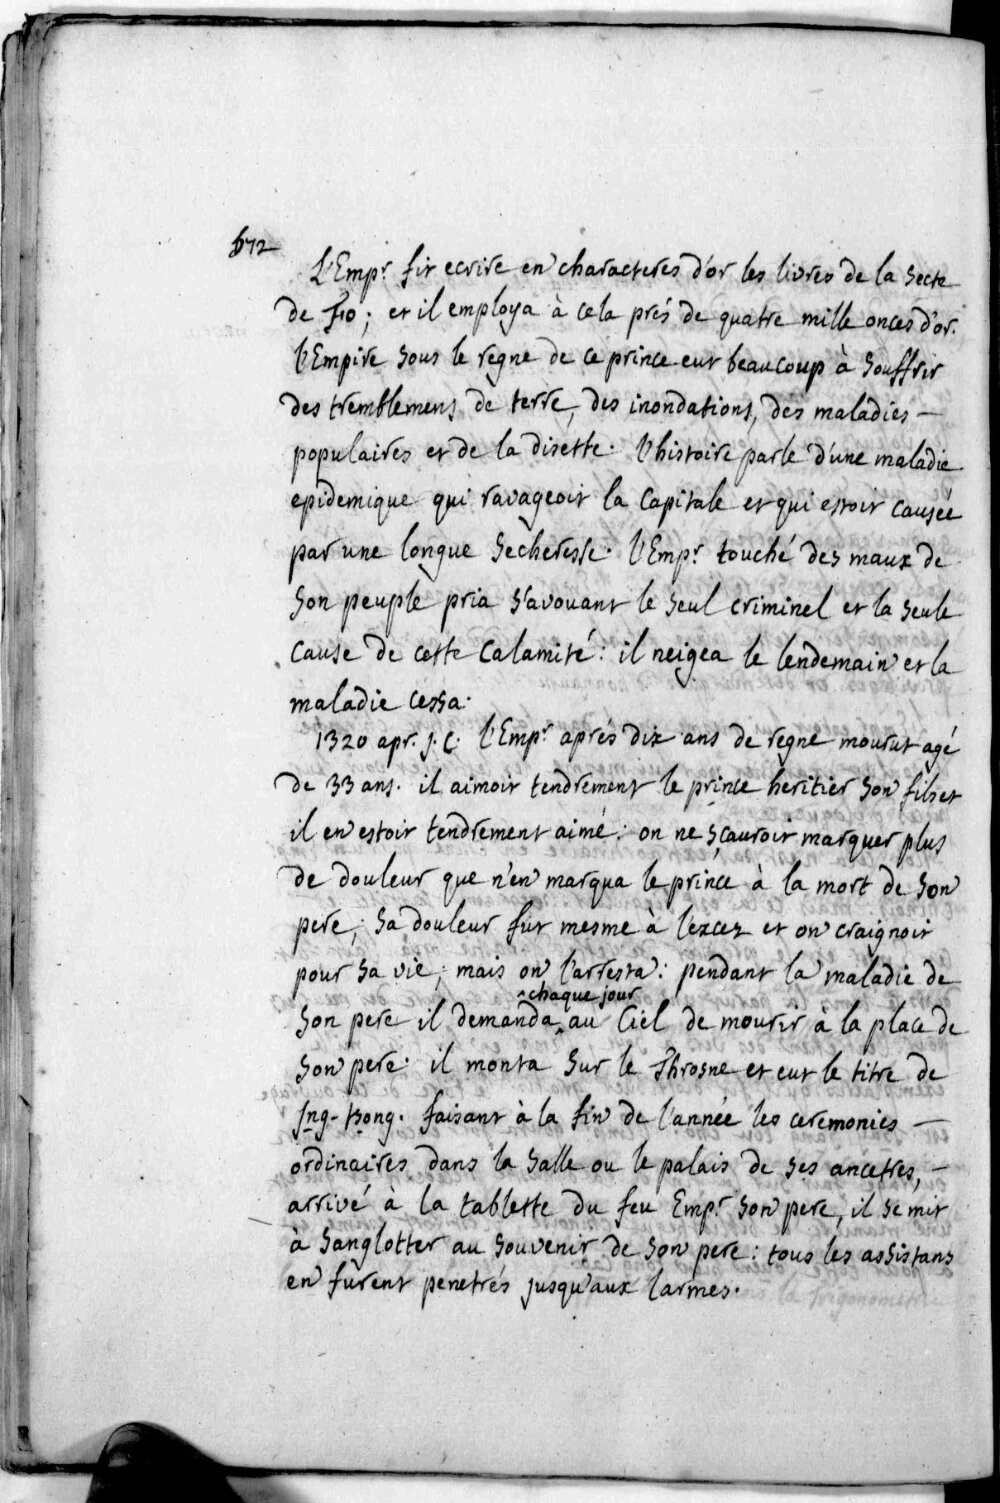 672
L'Emp.r fit ecrire en characteres d'or les livres de la Secte
de Fo; et il employa à cela prés de quatre mille onces d'or.
l'Empire sous le regne de ce prince eut beaucoup à souffrir
des tremblemens de terre, des inondations, des maladies —
populaires et de la disette. l'histoire parle d'une maladie
epidemique qui ravageoit la Capitale et qui estoit causée
par une longue secheresse. l'Emp.r touché des maux de
son peuple pria s'avouant le seul criminel et la seule
cause de cette calamité: il neigea le lendemain et la
maladie cessa.
1320 apr. j. C. l'Emp.r aprés dix ans de regne mourut agé
de 33 ans. il aimoit tendrement le prince heritier son fils et
il en estoit tendrement aimé: on ne sçauroit marquer plus
de douleur que n'en marqua le prince à la mort de son
pere; sa douleur fut mesme à l'excez et on craignoit
pour sa vie; mais on l'arresta: pendant la maladie de
chaque jour
son pere il demanda au Ciel de mourir à la place de
son pere. il monta sur le Throsne et eut le titre de
Jng-tsong. faisant à la fin de l'année les ceremonies —
ordinaires dans la Salle ou le palais de ses ancetres, —
arrivé à la tablette du feu Emp.r son pere, il se mit
à sanglotter au souvenir de son pere: tous les assistans
en furent penetrés jusqu'aux larmes.